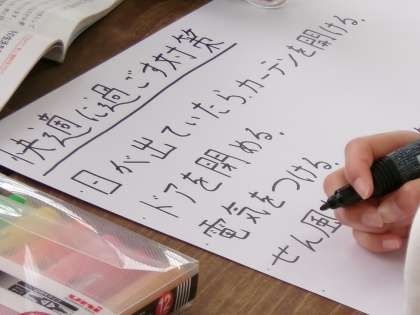 快適に過ごす対策
日が出ていたら、カーテンを開ける。
ドアを開める。
電気をつける。
せん風
uni